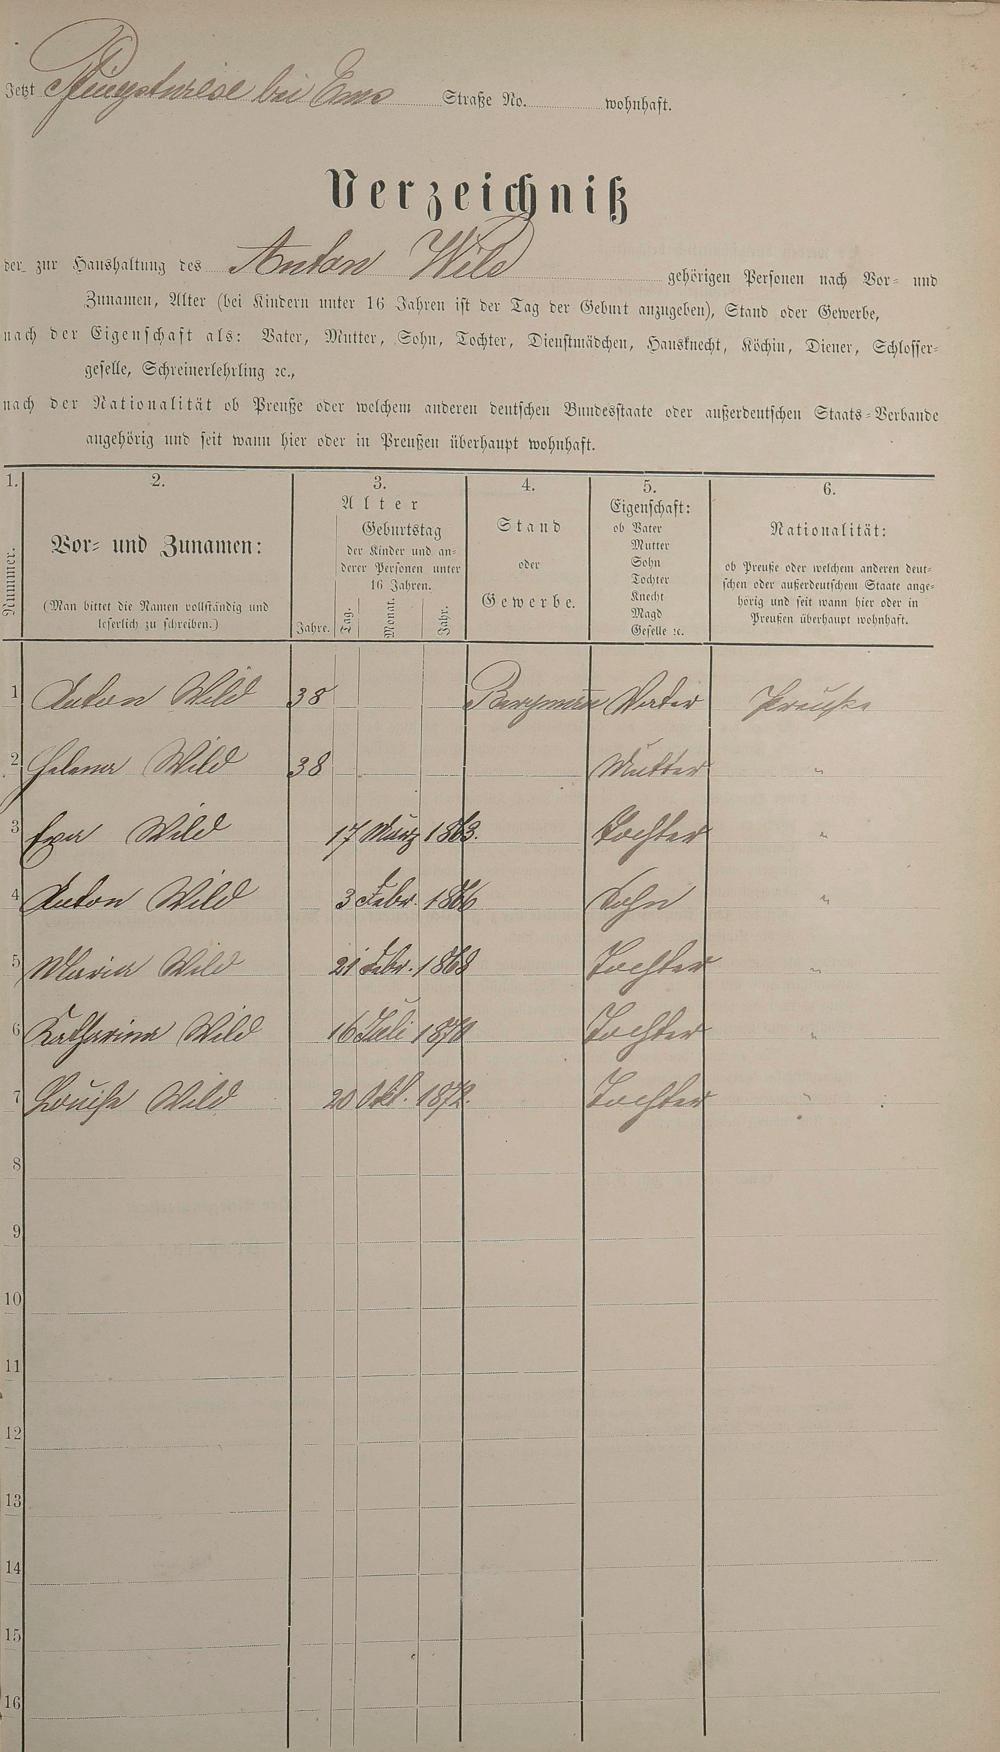 Jetzt Pfingstwiese bei Ems Straße No. wohnhaft.
Verzeichniß
der zur Haushaltung des Anton Wild gehörigen Personen nach Vor- und
Zunamen, Alter (bei Kindern unter 16 Jahren ist der Tag der Geburt anzugeben), Stand oder Gewerbe,
nach der Eigenschaft als: Vater, Mutter, Sohn, Tochter, Dienstmädchen, Hausknecht, Köchin, Diener, Schlosser-
geselle, Schreinerlehrling ꝛc.,
nach der Nationalität ob Preuße oder welchem anderen deutschen Bundesstaate oder außerdeutschen Staats-Verbande
angehörig und seit wann hier oder in Preußen überhaupt wohnhaft.
1. 2. 3. 4. 5. 6.
Nummer.
Vor- und Zunamen:
(Man bittet die Namen vollständig und
leserlich zu schreiben.)
Alter
Jahre.
Geburtstag
der Kinder und an-
derer Personen unter
16 Jahren.
Tag. Monat. Jahr.
Stand
oder
Gewerbe.
Eigenschaft:
ob Vater
Mutter
Sohn
Tochter
Knecht
Magd
Geselle ꝛc.
Nationalität:
ob Preuße oder welchem anderen deut-
schen oder außerdeutschem Staate ange-
hörig und seit wann hier oder in
Preußen überhaupt wohnhaft.
1 Anton Wild 38 Bergmann Vater Preuße
2 Helena Wild 38 Mutter "
3 Eva Wild 17 März 1863. Tochter "
4 Anton Wild 3 Febr. 1866 Sohn "
5 Maria Wild 21 Febr. 1868 Tochter "
6 Katharina Wild 16 Juli 1870 Tochter "
7 Louise Wild 20 Okt. 1872. Tochter "
8
9
10
11
12
13
14
15
16